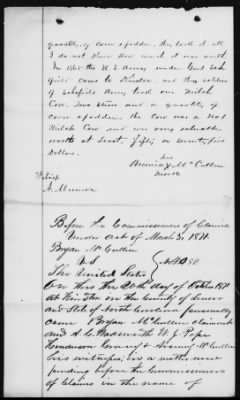 quantity of corn & fodder, they took it all
I do not know how much it was worth
In 1865 the U.S. Army under Genl Scho
field came to Kinston and they soldiers
of Schofields Army took one Milch
Cow. Two steers and a quantity of
corn & fodder. the Cow was a No 1
Milch Cow and was very valuable
worth at least, Fifty or seventy five
Dollars.
her
Annie X McCullen
mark
Witness
A. Munroe
Before the Commissioners of Claims
Under Act of March 3, 1871
Bryan McCullen
vs
The United States
On this the 20th day of October 1871
at Kinston in the County of Lenoir
and State of North Carolina personally
came Bryan McCullen claimant
and W. J. Pope
his witnesses, in a matter now
pending before the Commissioners
of Claims in the name of